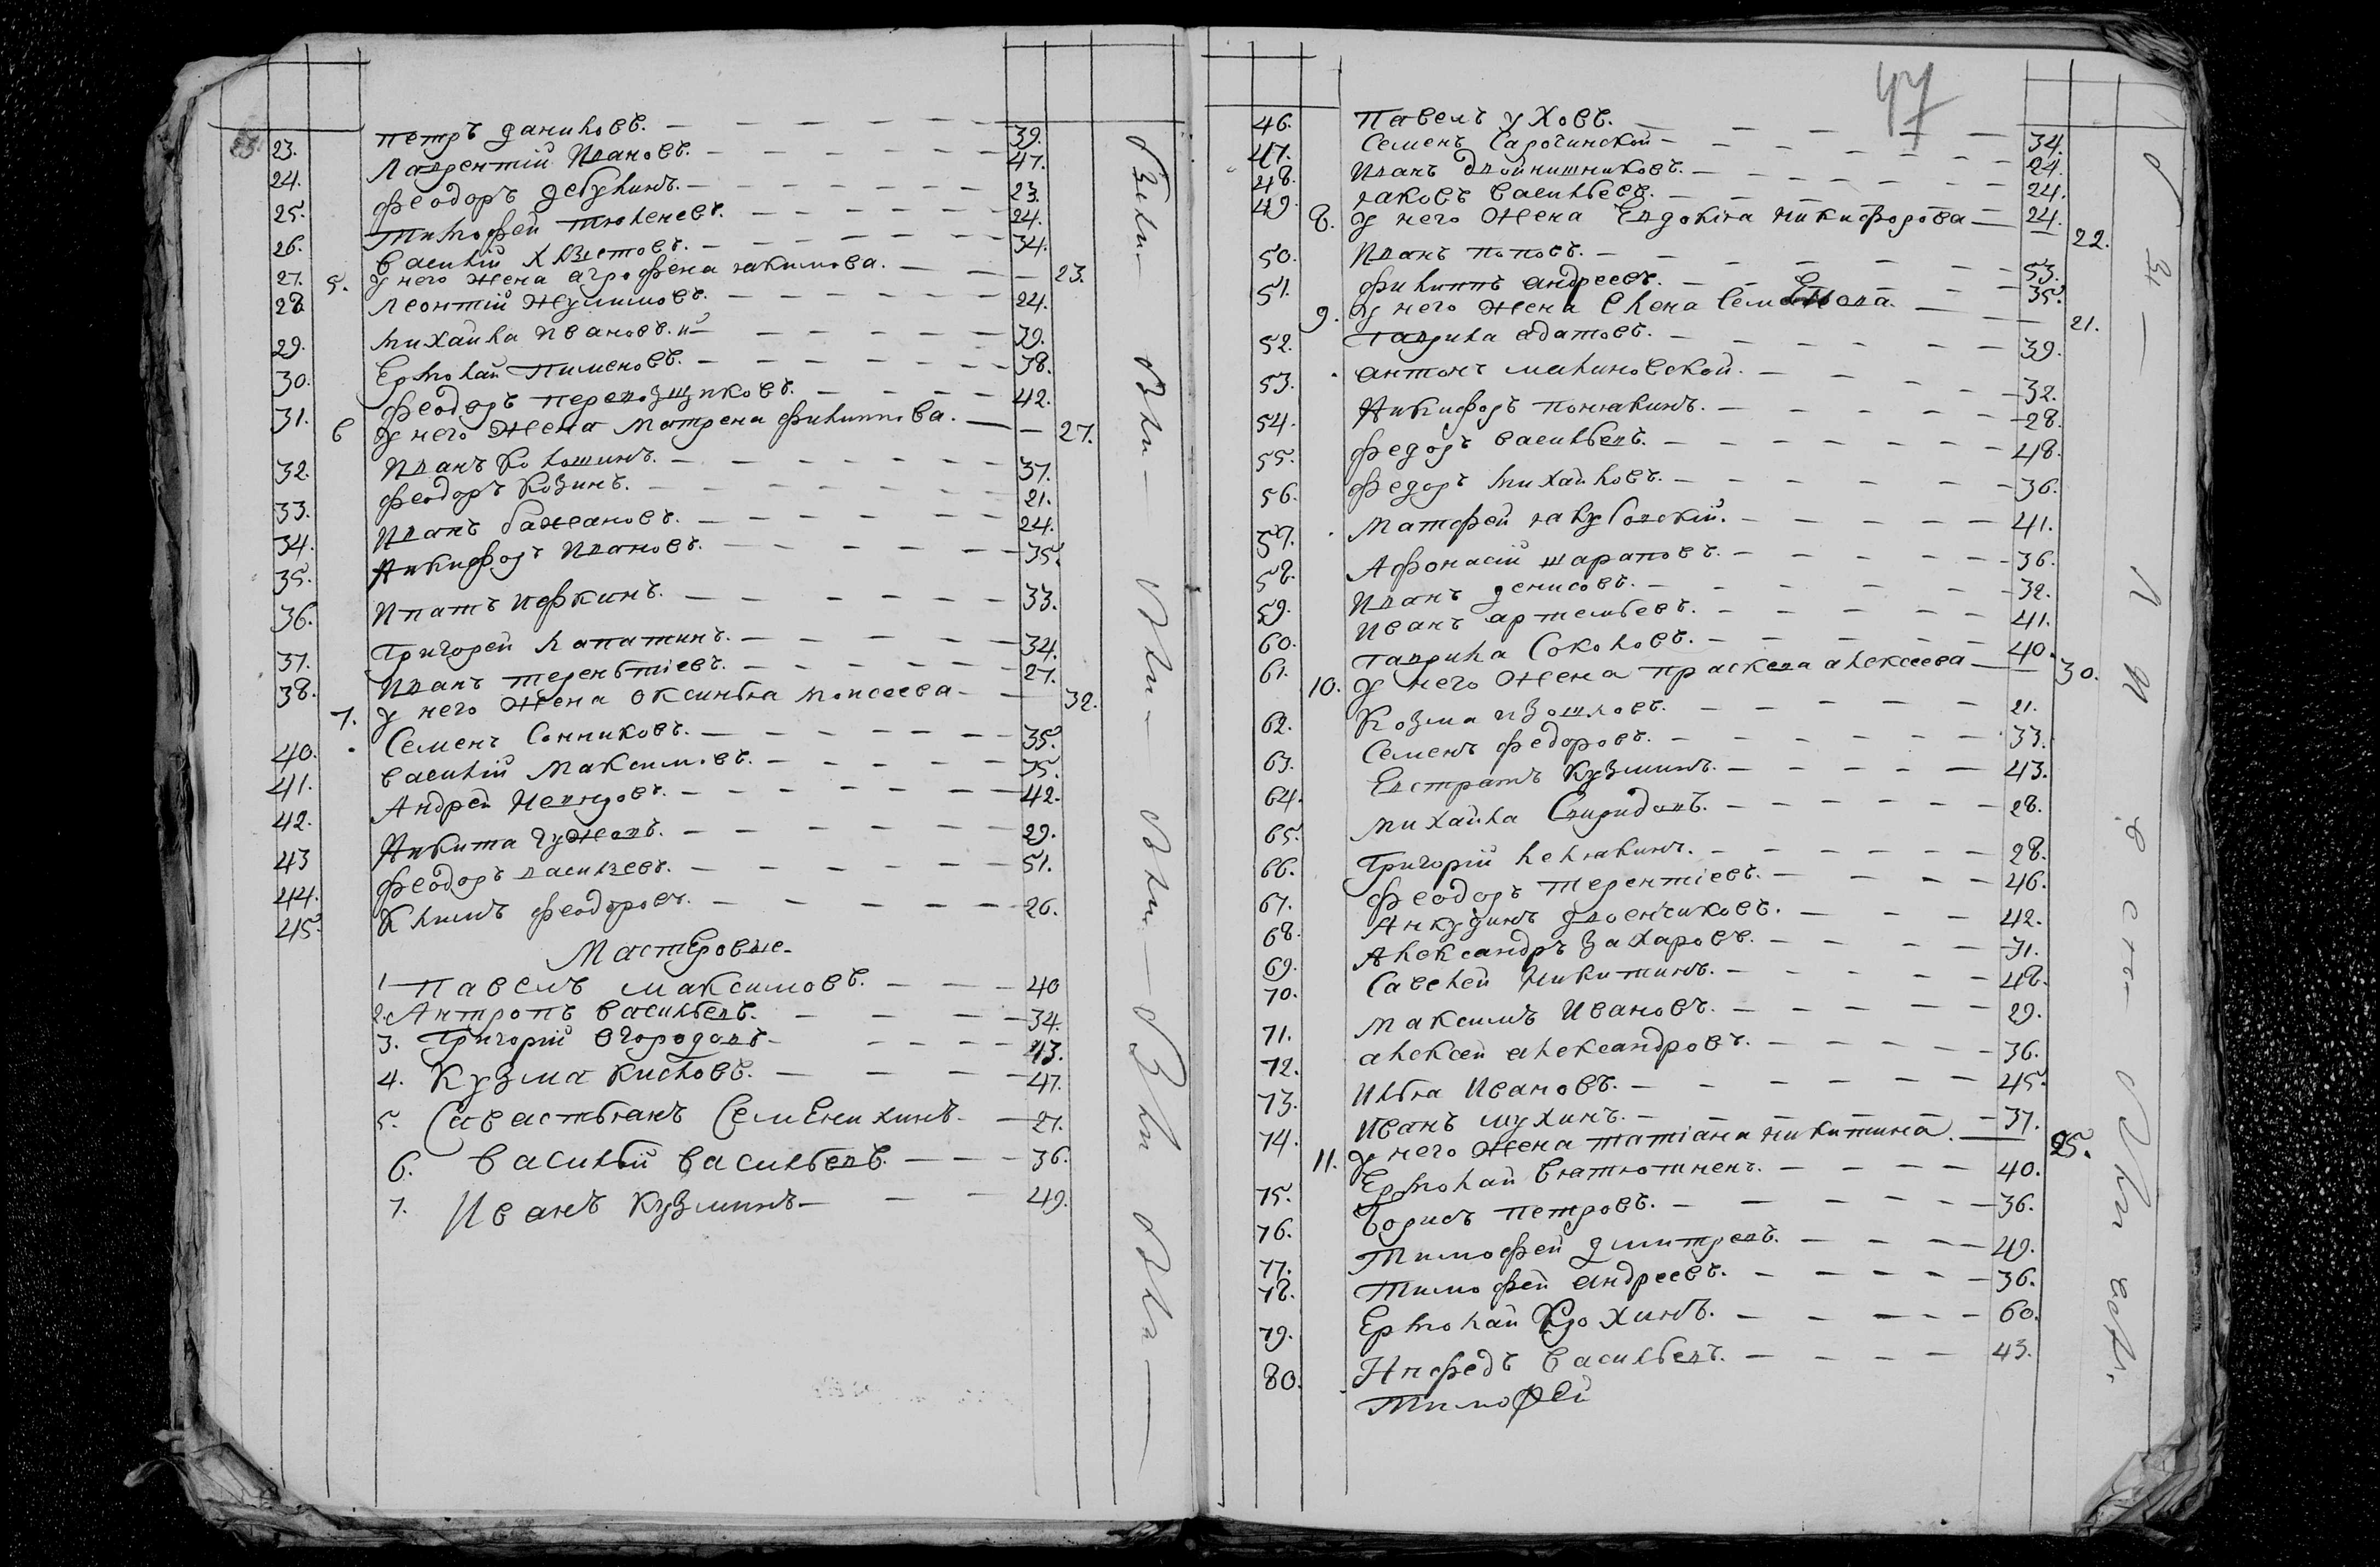 23. петръ даниловъ. 39.
24. Лаврентий Ивановъ. 47.
25. феодоръ дебулинъ. 23.
Тимофей тюленевъ. 24.
26. Василий хлыстовъ. 34.
27. 5. У него жена агрофена якимова. 23.
28 Леонтий Жулимовъ. 24.
29. михайла ивановъ. 39.
30. Ермолай Пименовъ. 38.
31. феодоръ перевощиковъ. 42.
6 У него жена матрена филиппова. 27.
32. Иванъ Колошинъ. 37.
33. феодоръ Козинъ. 21.
34. Иванъ бажановъ. 24.
35. Никифоръ Ивановъ. 35.
36. Ипатъ Ифкинъ. 33.
37. Григорей лапатинъ. 34.
38. Иванъ терентьиевъ. 27.
7. У него жена оксинья моисеева. 32.
40. Семенъ Сонниковъ. 35.
41. василий Максимовъ. 35.
42. Андрей 42.
43 Никита чужевъ. 29.
44. феодоръ васильевъ. 51.
45. Климъ феодоровъ. 26.
Мастеровые.
1 Павелъ максимовъ. 40
2. Антропъ васильевъ. 34.
3. Григорий огородовъ. 43.
4. Кузма кисловъ. 47.
5. Савастьянъ Семенихинъ. 27.
6. Василий васильевъ. 36.
7. Иванъ кузминъ 49.
47
46. Павелъ уховъ. 34.
47. Семенъ Сарочинской 24.
48. Иванъ двойнишниковъ. 24.
49. яковъ васильевъ. 24.
8. У него жена Евдокия никифорова 22.
50. Иванъ поповъ. 53.
51. филиппъ андреевъ. 35.
9. У него жена елена Семенова. 21.
52. Гаврила адатовъ. 39.
53. антонъ малиновской. 32.
54. Никифоръ понякинъ. 28.
55. федоръ васильевъ. 48.
56. федоръ михайловъ. 36.
57. Матфей якубовский. 41.
58. Афонасий шараповъ. 36.
59. Иванъ денисовъ. 32.
60. Иванъ артемьевъ. 41.
61. гаврила Соколовъ. 40.
10. У него жена прасковя алексеева 30.
62. Козма изошловъ. 21.
63. Семенъ федоровъ. 33.
64. Евстратъ Кузминъ. 43.
65. михайла Свиридовъ. 28.
66. Григорий келякинъ. 28.
67. феодоръ терентиевъ. 46.
68. Анкудинъ двоенчиковъ. 42.
69. Александръ захаровъ. 31.
70. Савелей Никитинъ. 48.
71. Максимъ Ивановъ. 29.
72. алексей александровъ. 36.
73. Илья Ивановъ. 45.
74. Иванъ мухинъ. 37.
11. У него жена татиана никитина. 25.
75. Ермолай 40.
76. борисъ петровъ. 36.
77. Тимофей дмитревъ. 49.
78. Тимофей андреевъ. 36.
79. Ермолай Ерохинъ. 60.
80. Нифедъ васильевъ. 43.
Тимофей